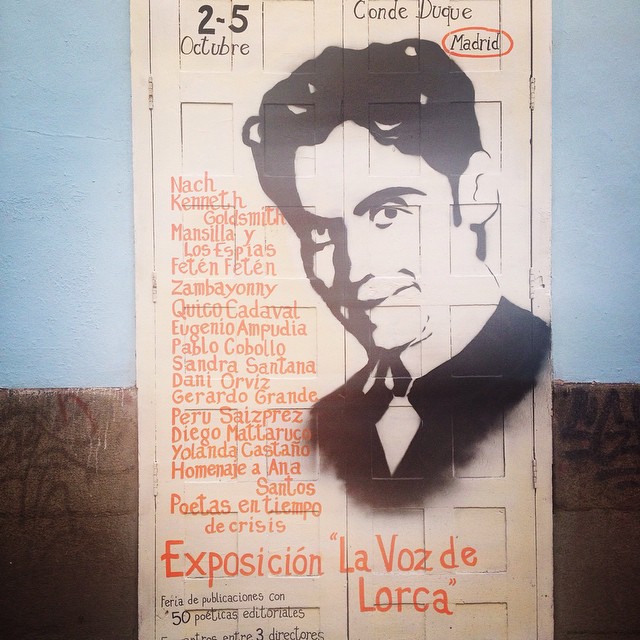 2-5
Octubre
Conde Duque
Madrid
Nach
Kenneth
Goldsmith
Mansilla y
Los Espías
Fetén Fetén
Zambayonny
Quico Cadaval
Eugenio Ampudia
Pablo Cobollo
Sandra Santana
Dani Orviz
Gerardo Grande
Peru Saizprez
Diego Mattaruco
Yolanda Castaño
Homenaje a Ana
Santos
Poetas en tiempo
de crisis
Exposición "La Voz de
Lorca"
Feria de publicaciones con
50 poéticas editoriales
entre 3 directores